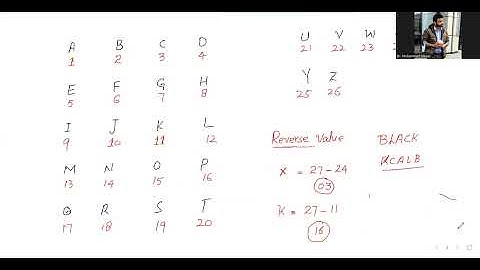 A B C D
1 2 3 4
E F G H
5 6 7 8
I J K L
9 10 11 12
M N O P
13 14 15 16
Q R S T
17 18 19 20
U V W
21 22 23
Y Z
25 26
Reverse Value
X = 27-24
03
K = 27-11
16
BLACK
KCALB